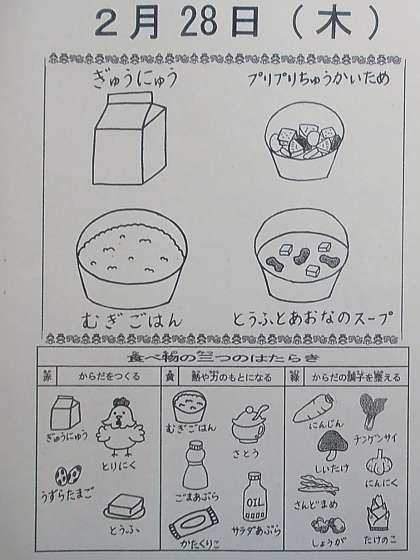 2月28日（木）
ぎゅうにゅう
プリプリちゅうかいため
むぎごはん
とうふとあおなのスープ
食べ物の三つのはたらき
赤 からだをつくる
黄 熱や力のもとになる
緑 からだの調子を整える
ぎゅうにゅう
とりにく
うずらたまご
とうふ
むぎごはん
さとう
ごまあぶら
OIL
サラダあぶら
かたくりこ
にんじん
チンゲンサイ
しいたけ
にんにく
さんどまめ
しょうが
たけのこ